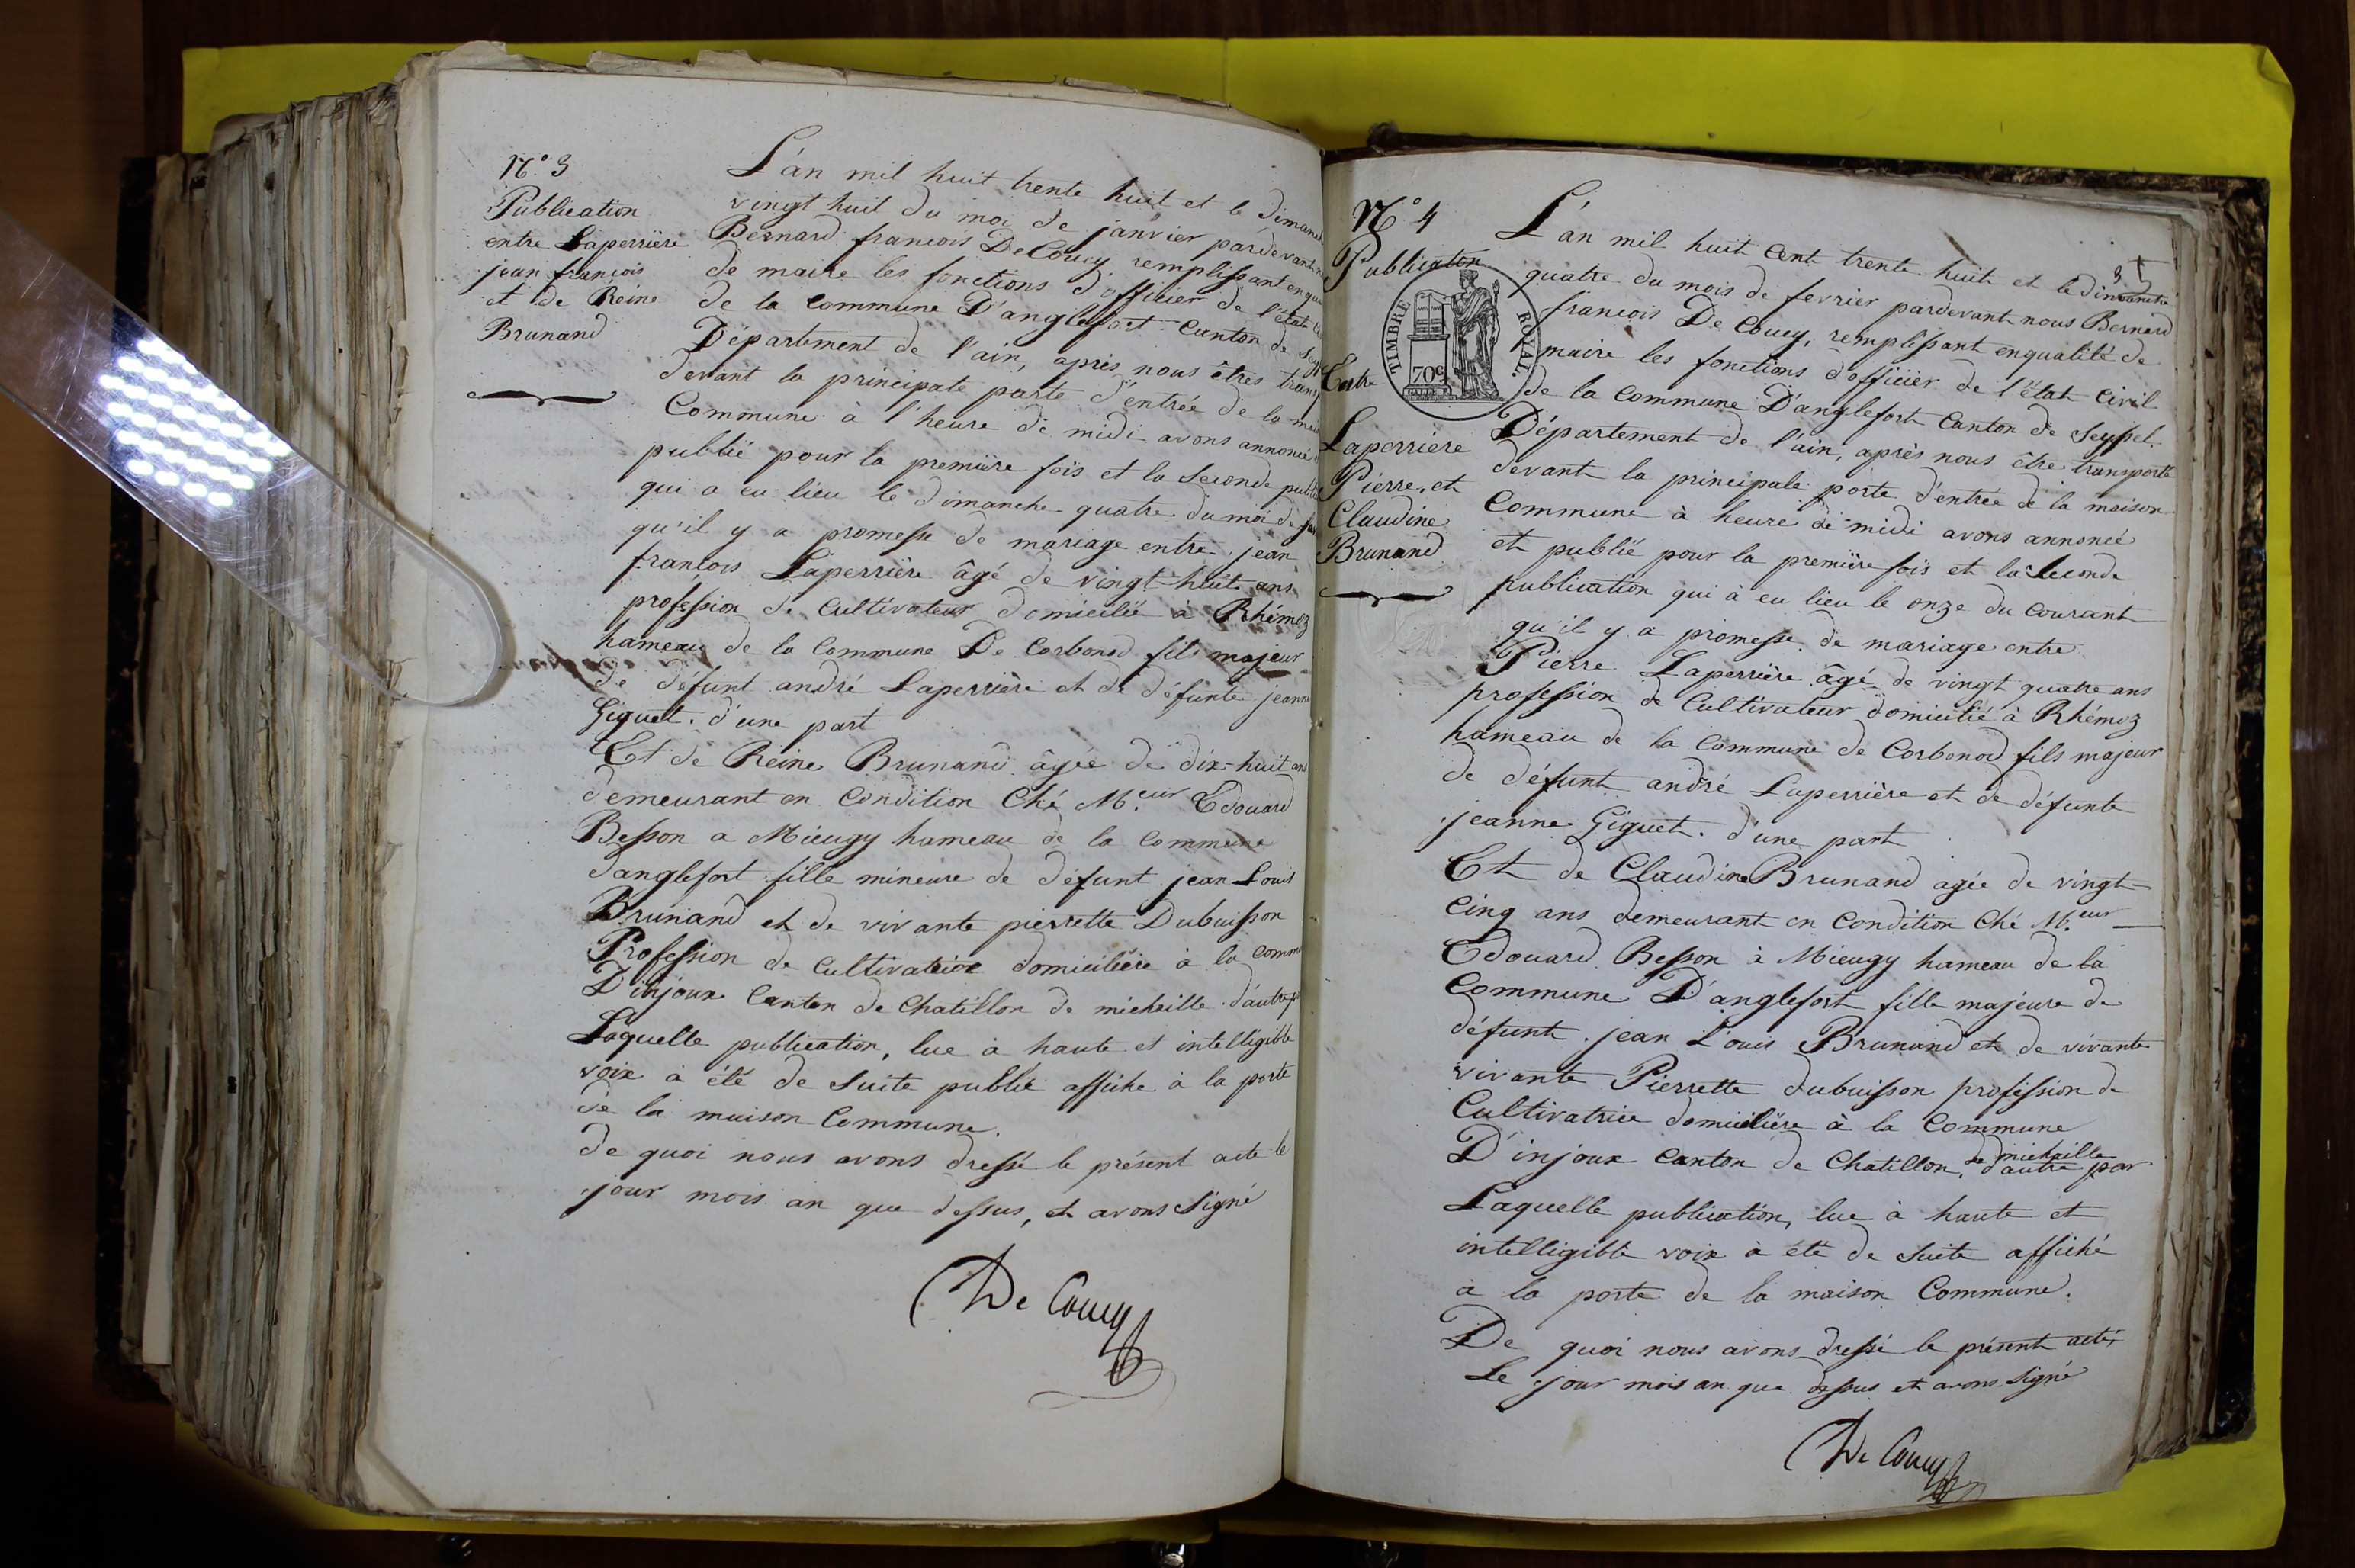 N.° 3
Publication
entre Laperrière
jean françois
et de Reine
Brunand
L'an mil huit trente huit et le dimanche
vingt huit du moi de janvier pardevant
Bernard françois De Coucy, remplissant en
de maire les fonctions d'officier de l'état
de la Commune D'anglefort Canton de
Département de l'ain, après nous êtres
devant la principale porte d'entrée de la
Commune à l'heure de midi avons annoncé
publié pour la première fois et la seconde
qui a eu lieu le dimanche quatre du moi de
qu'il y a promesse de mariage entre jean
françois Laperrière âgé de vingt-huit ans
profession de Cultivateur domicilié à Rhémoz
hameau de la Commune De Corbonod fils majeur
de défunt andré Laperrière et de défunte jeanne
Giguet. d'une part
Et de Reine Brunand âgée de dix-huit ans
demeurant en Condition Ché M.eur Edouard
Besson a Mieugy hameau de la Commune
d'anglefort fille mineure de défunt jean Louis
Brunand et de vivante pierrette Dubuisson
Profession de Cultivatrice domicilière à la
D'injoux Canton de Chatillon de michaille d'autre
Laquelle publication, lue à haute et intelligible
voix à été de suite publié affiche à la porte
de la maison Commune.
de quoi nous avons dressé le présent acte le
jour mois an que dessus, et avons signé
De Coucy
N.° 4
Publication
TIMBRE ROYAL.
70c
Entre
Laperrière
Pierre, et
Claudine
Brunand
L'an mil huit Cent trente huit et le dimanche
quatre du mois de fevrier pardevant nous Bernard
françois De Coucy, remplissant en qualité de
maire les fonctions d'officier de l'état Civil
de la Commune D'anglefort Canton de Seyssel
Département de l'ain, après nous être transporté
devant la principale porte d'entrée de la maison
Commune à heure de midi avons annoncé
et publié pour la première fois et la seconde
publication qui à eu lieu le onze du Courant
qu'il y a promesse de mariage entre
Pierre Laperrière âgé de vingt quatre ans
profession de Cultivateur domicilié à Rhémoz
hameau de la Commune de Corbonod fils majeur
de défunt andré Laperrière et de défunte
jeanne Giguet. d'une part
Et de Claudine Brunand agée de vingt-
Cinq ans demeurant en Condition Ché M.eur
Edouard Besson à Mieugy hameau de la
Commune D'anglefort fille majeure de
défunt jean Louis Brunand et de vivante
vivante Pierrette dubuisson profession de
Cultivatrice domicilière à la Commune
D'injoux Canton de Chatillon, de michaille d'autre par
Laquelle publication, lue à haute et
intelligible voix à été de suite affiché
à la porte de la maison Commune.
De quoi nous avons dressé le présent acte,
Le jour mois an que dessus et avons signé
De Coucy